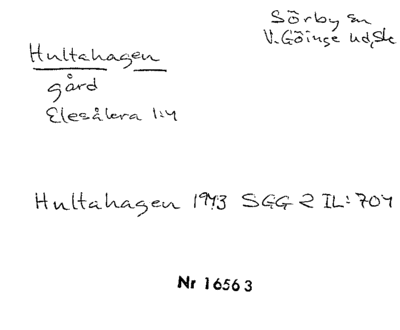 Sörby sn
V. Göinge hd, Sk
Hultahagen
gård
Elesåkra 1:4
Hultahagen 1943 SGG 2 IL: 704
Nr 16563